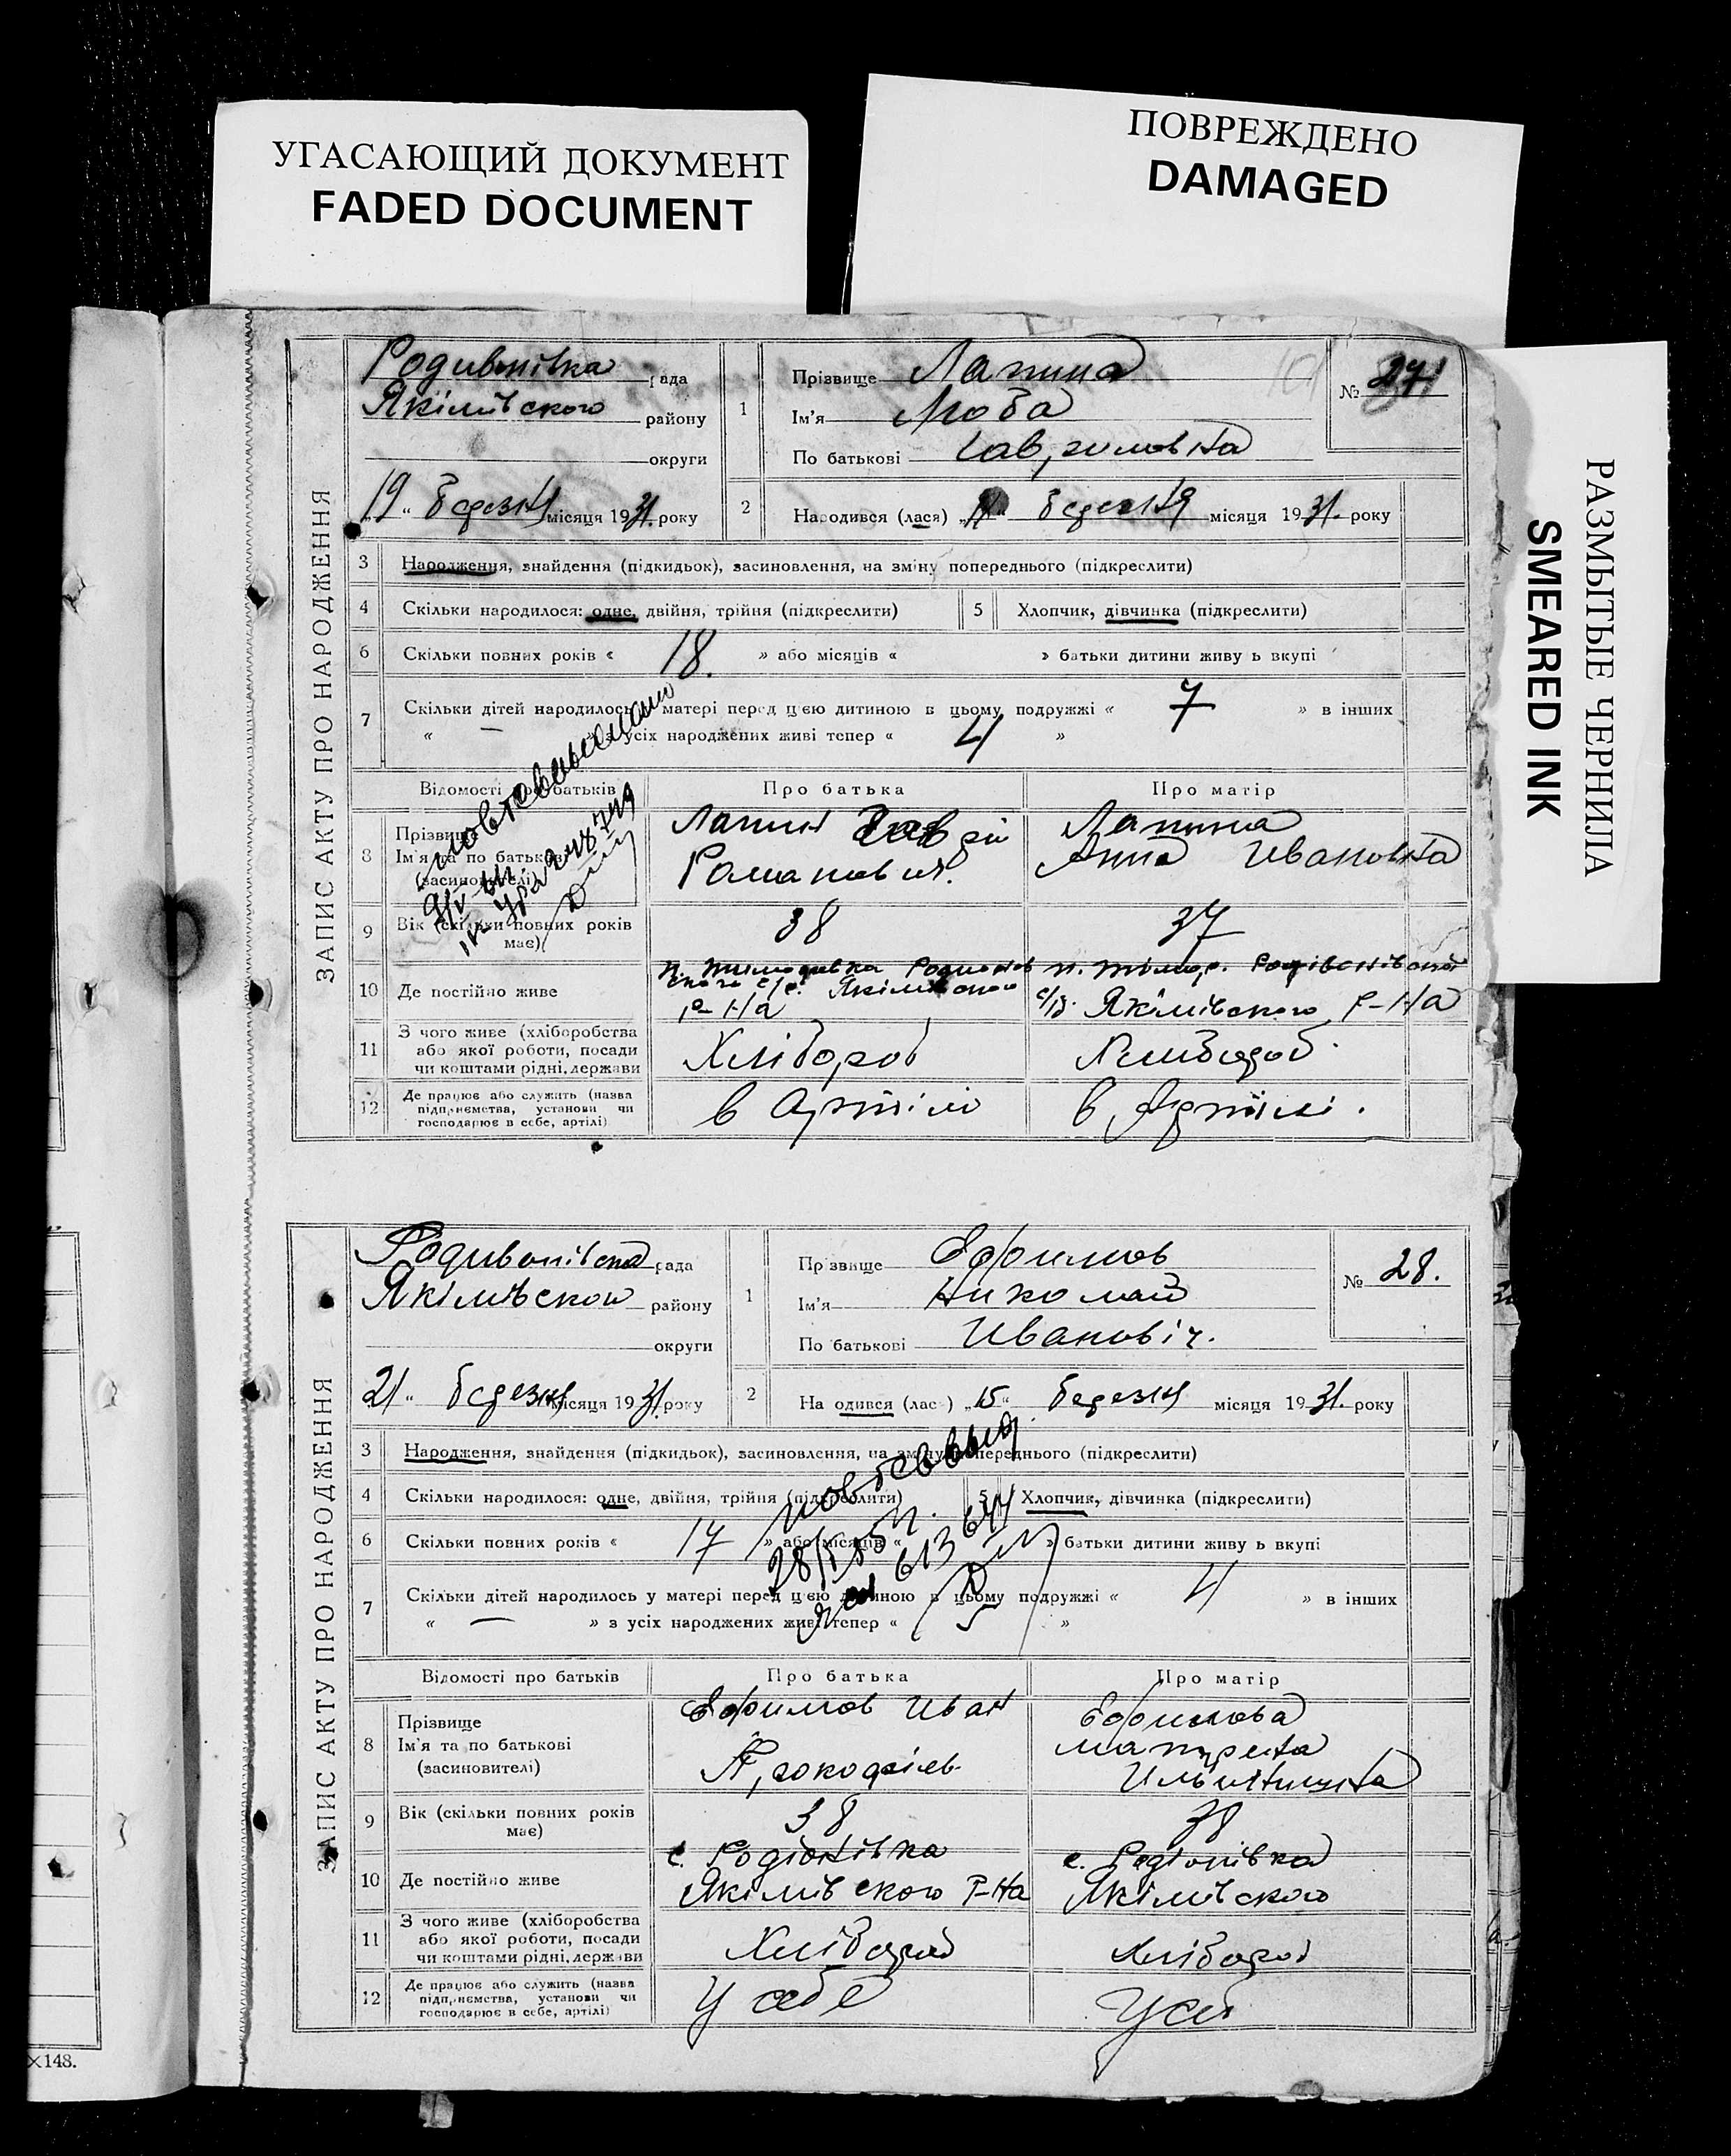 УГАСАЮЩИЙ ДОКУМЕНТ
FADED DOCUMENT
ПОВРЕЖДЕНО
DAMAGED
РАЗМЫТЫЕ ЧЕРНИЛА
SMEARED INK
ЗАПИС АКТУ ПРО НАРОДЖЕННЯ
Родивонівка рада
Якімівского району
округи
„19“ березня місяця 1931 року
1 Прізвище Лапина
Ім'я Люба
По батькові
№ 27
2 Народився (лася) березня місяця 1931. року
3 Народження, знайдення (підкидьок), засиновлення, на зміну попереднього (підкреслити)
4 Скільки народилося: одне, двійня, трійня (підкреслити)
5 Хлопчик, дівчинка (підкреслити)
6 Скільки повних років « 18. » або місяців « » батьки дитини живу ь вкупі
7 Скільки дітей народилось у матері перед цією дитиною в цьому подружжі « 7 » в інших
« — » з усіх народжених живі тепер « 4 »
Відомості про батьків
Про батька
Про матір
8 Прізвище
Ім'я та по батькові
(засиновителі)
Лапин
Романович.
Лапина
Анна Ивановна
9 Вік (скільки повних років
має)
38
37
10 Де постійно живе
Якімівского
р-на
Якімівского р-на
11 З чого живе (хліборобства
або якої роботи, посади
чи коштами рідні, держави
Хлібороб
Хлибороб
12 Де працює або служить (назва
підприємства, установи чи
господарює в себе, артілі)
в Артілі
в Артілі.
ЗАПИС АКТУ ПРО НАРОДЖЕННЯ
Родивонівска рада
Якімівского району
округи
21“ березня місяця 1931. року
1 Прізвище Ефимов
Ім'я Николай
По батькові Ивановіч.
№ 28.
2 На одився (лас ) „15“ березня місяця 1931. року
3 Народження, знайдення (підкидьок), засиновлення, на зміну попереднього (підкреслити)
4 Скільки народилося: одне, двійня, трійня (підкреслити)
5 Хлопчик, дівчинка (підкреслити)
6 Скільки повних років « 17 » або місяців « » батьки дитини живу ь вкупі
7 Скільки дітей народилось у матері перед цією дитиною в цьому подружжі « 4 » в інших
« — » з усіх народжених живі тепер « 5 »
613644
Відомості про батьків
Про батька
Про матір
8 Прізвище
Ім'я та по батькові
(засиновителі)
Ефимов Иван
Ефимова
9 Вік (скільки повних років
має)
38
38
10 Де постійно живе
с. Родіонівка
Якімівского р-на
с. Родіонівка
Якімівского
11 З чого живе (хліборобства
або якої роботи, посади
чи коштами рідні, держави
Хлібороб
Хлібороб
12 Де працює або служить (назва
підприємства, установи чи
господарює в себе, артілі)
У себе
У себе
×148.